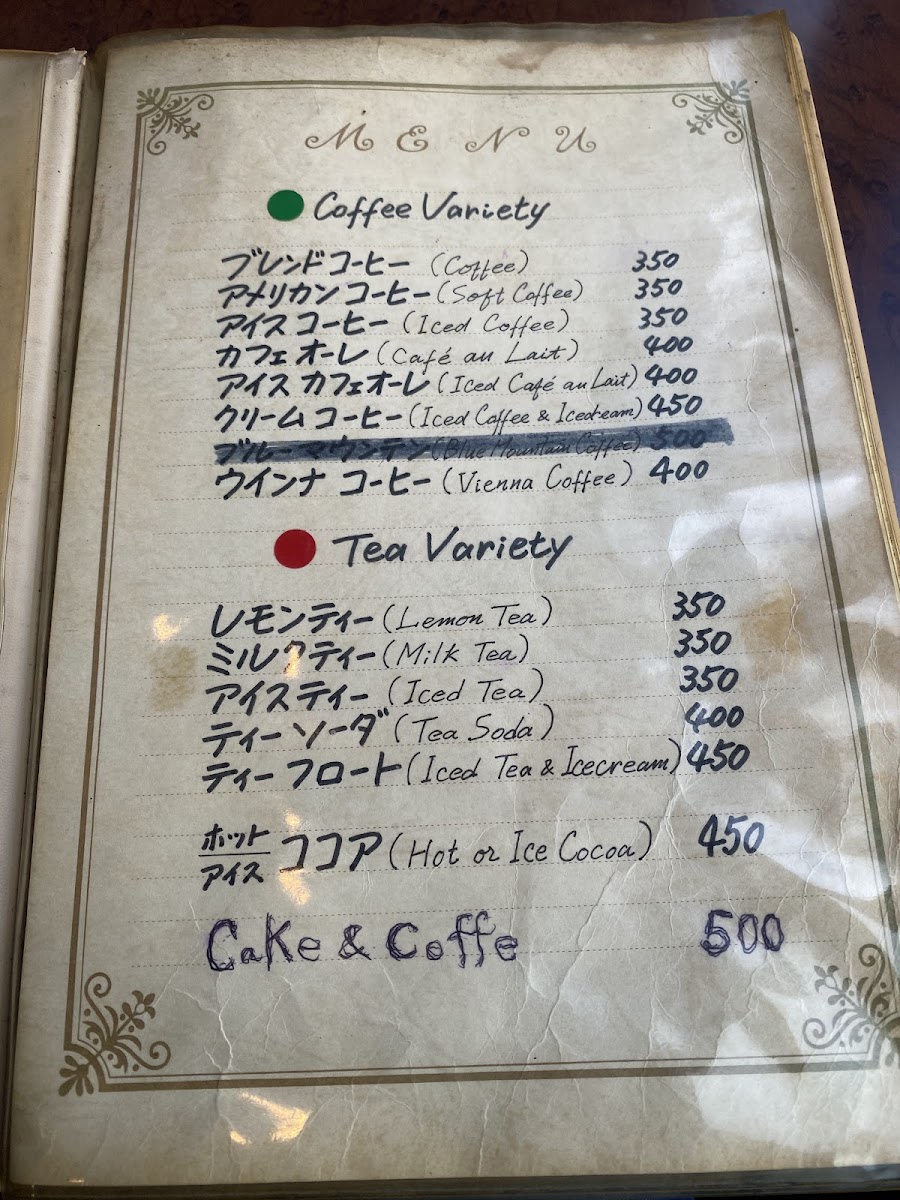 MENU
Coffee Variety
ブレンドコーヒー (Coffee) 350
アメリカンコーヒー (Soft Coffee) 350
アイスコーヒー (Iced Coffee) 350
カフェオーレ (Café au Lait) 400
アイスカフェオーレ (Iced Café au Lait) 400
クリームコーヒー (Iced Coffee & Icecream) 450
ブルーマウンテン (Blue Mountain Coffee) 500
ウインナコーヒー (Vienna Coffee) 400
Tea Variety
レモンティー (Lemon Tea) 350
ミルクティー (Milk Tea) 350
アイスティー (Iced Tea) 350
ティーソーダ (Tea Soda) 400
ティーフロート (Iced Tea & Icecream) 450
ホット
アイス ココア (Hot or Ice Cocoa) 450
Cake & Coffe 500